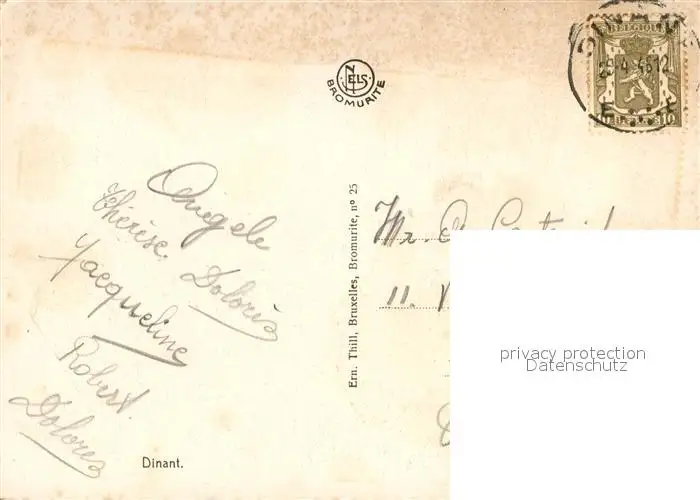 BELGIQUE
10 10
NELS
BROMURITE
Angele
Thérèse Dolorès
Jacqueline
Robert
Dolorès
Dinant.
Ern. Thill, Bruxelles, Bromurite, nº 25
Mr.
11.
privacy protection
Datenschutz